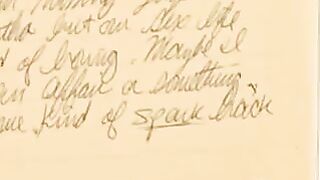 but our sex life
of boring. Maybe I
an affair or something
kind of spark back